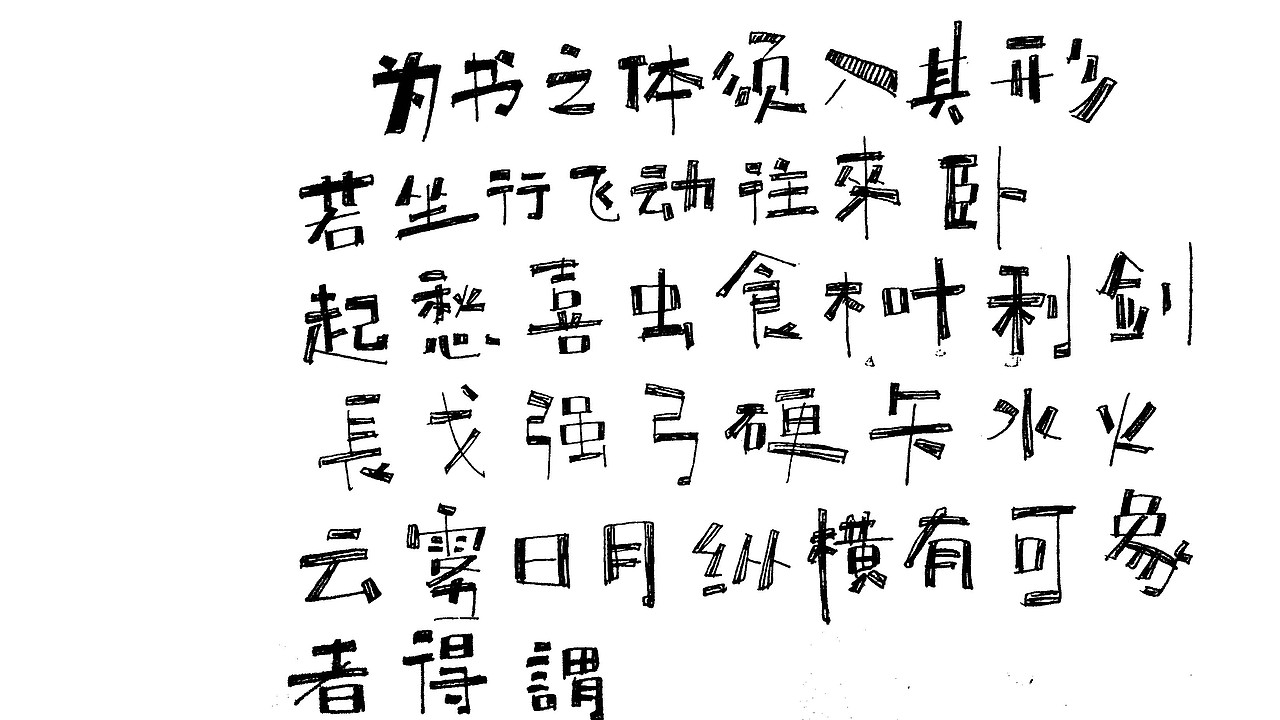 为书之体须入其形
若坐行飞动往來卧
起愁喜虫食和叶利剑
長戈强弓硬矢水火
云雾日月纵横有可象
者得謂